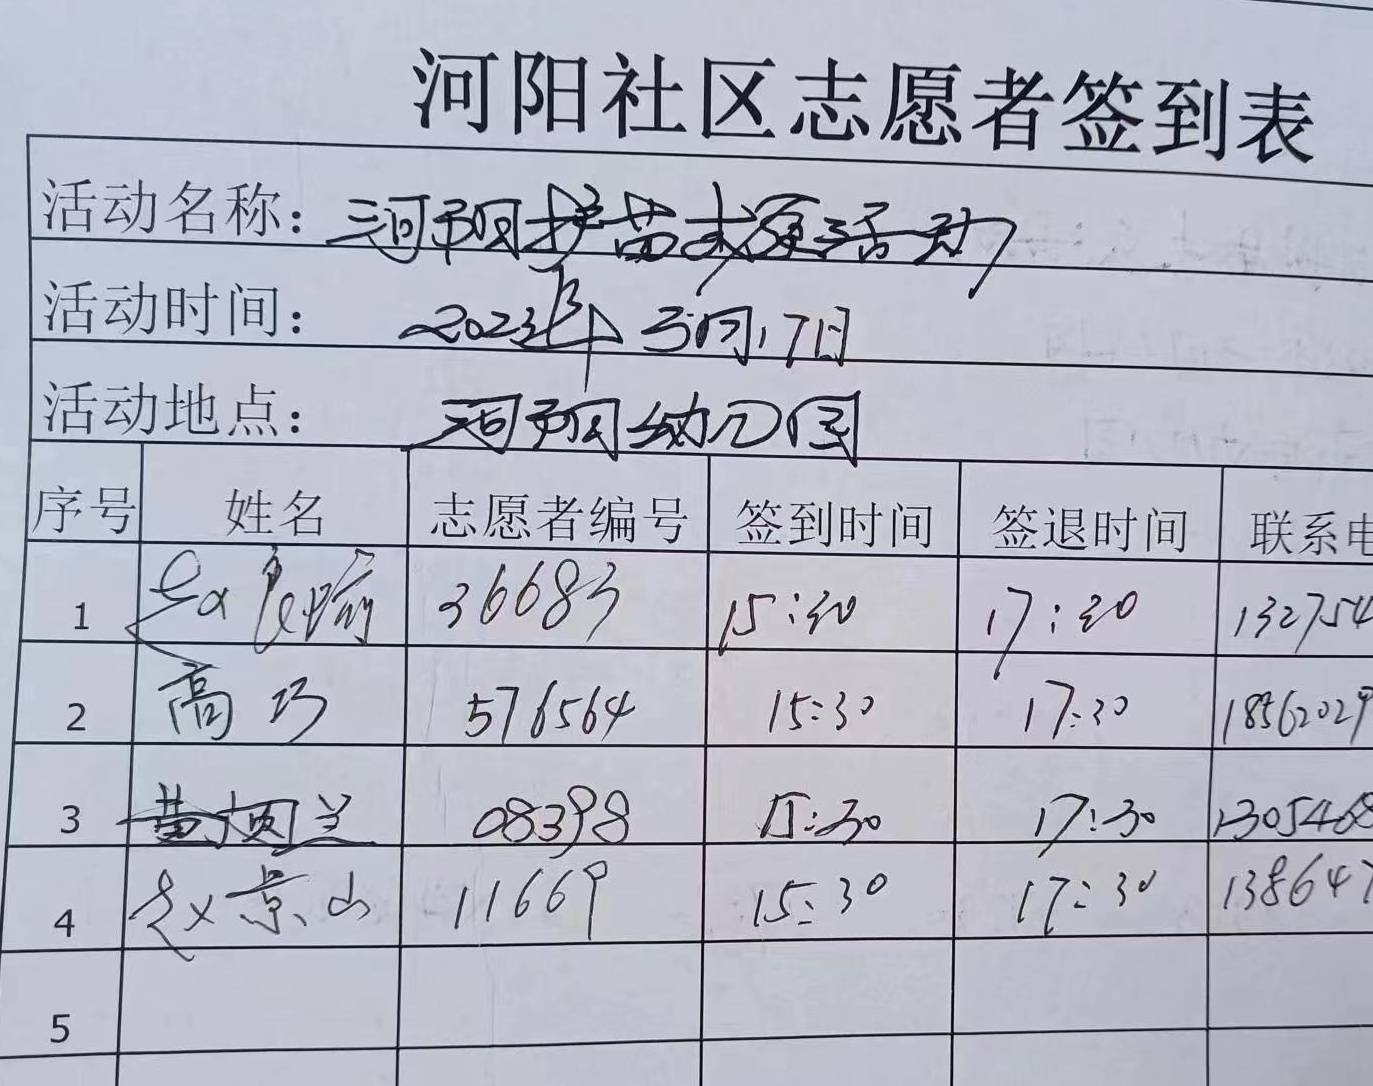 河阳社区志愿者签到表
活动名称：河阳护苗成长活动
活动时间：2023年3月17日
活动地点：河阳幼儿园
序号 姓名 志愿者编号 签到时间 签退时间 联系电
1 赵 36683 15:30 17:30 132754
2 高巧 576564 15:30 17:30 18562029
3 黄桷兰 08398 15:30 17:30 1305468
4 赵景山 11669 15:30 17:30 138647
5